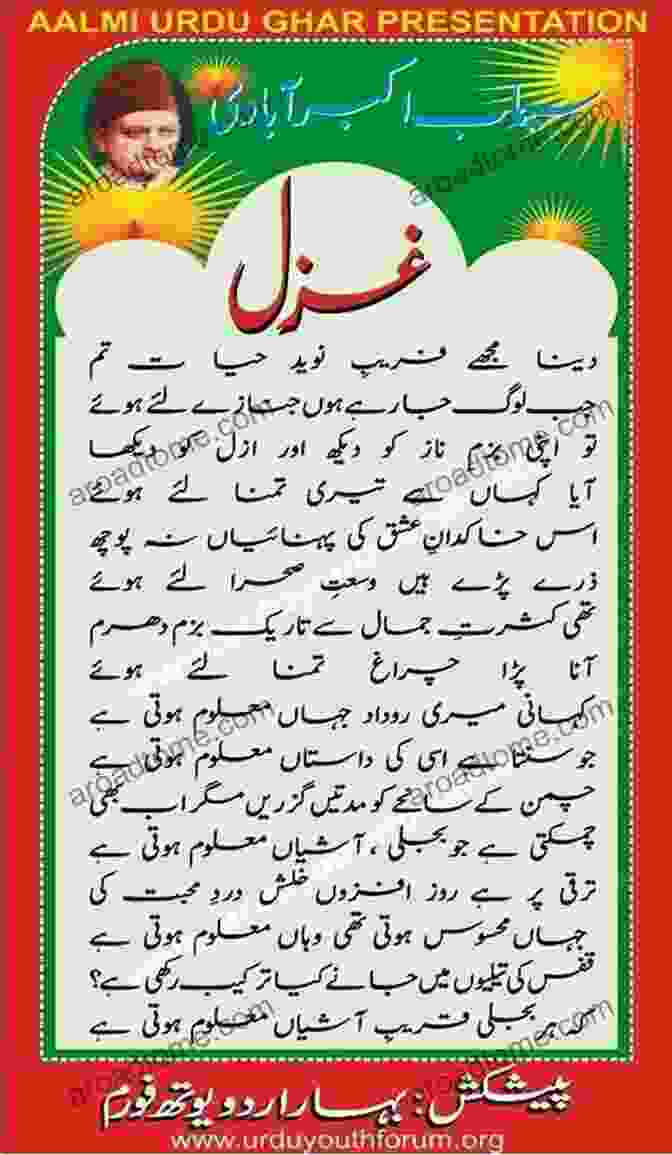 AALMI URDU GHAR PRESENTATION
سیماب اکبرآبادی
غزل
دینا مجھے فریبِ نوید حیات تم
جب لوگ جا رہے ہوں جنازے لئے ہوئے
تو اپنی بزم ناز کو دیکھ اور ازل کو دیکھا
آیا کہاں سے تیری تمنا لئے ہوئے
اس خاکدانِ عشق کی پہنائیاں نہ پوچھ
ذرے پڑے ہیں وسعتِ صحرا لئے ہوئے
تھی کثرتِ جمال سے تاریک بزم دھرم
آنا پڑا چراغ تمنا لئے ہوئے
کہانی میری روداد جہاں معلوم ہوتی ہے
جو سنتا ہے اسی کی داستاں معلوم ہوتی ہے
چمن کے سانحے کو مدتیں گزریں مگر اب بھی
چمکتی ہے جو بجلی ، آشیاں معلوم ہوتی ہے
ترقی پر ہے روز افزوں خلش دردِ محبت کی
جہاں محسوس ہوتی تھی وہاں معلوم ہوتی ہے
قفس کی تیلیوں میں جانے کیا ترکیب رکھی ہے؟
کہ ہر بجلی قریبِ آشیاں معلوم ہوتی ہے
پیشکش: بہار اردو یوتھ فورم
www.urduyouthforum.org
aroadtome.com
aroadtome.com
aroadtome.com
aroadtome.com
aroadtome.com
aroadtome.com
aroadtome.com
aroadtome.com